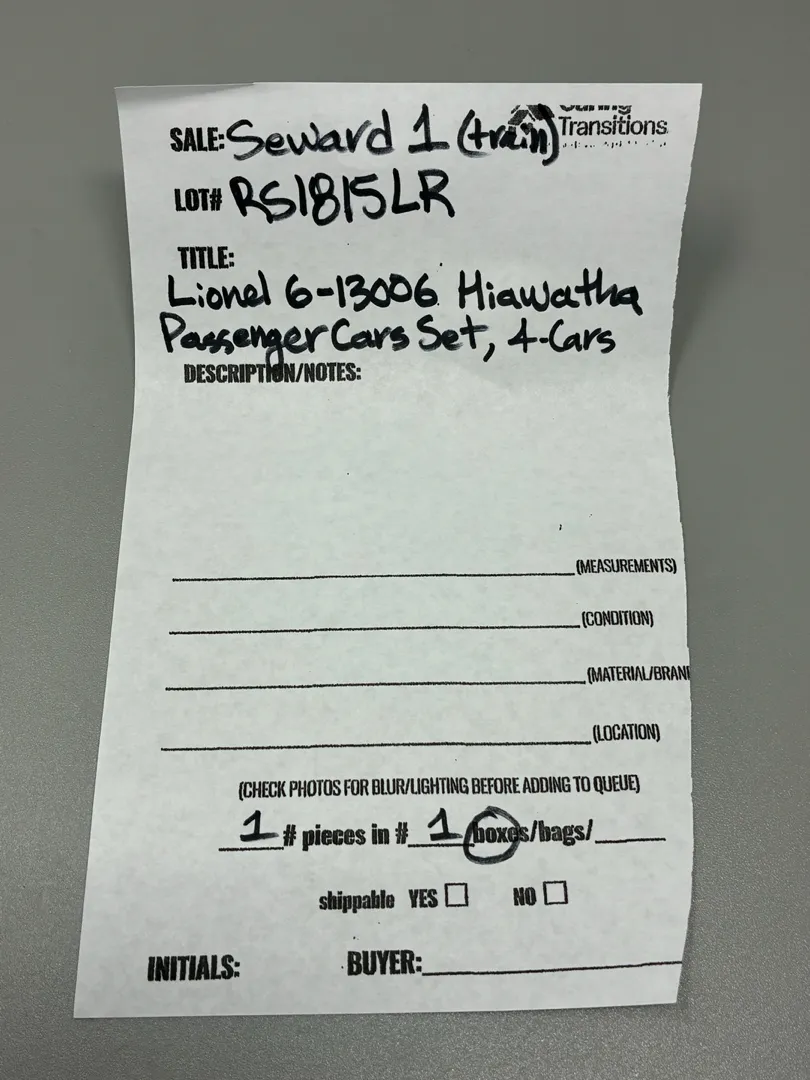 Transitions
SALE: Seward 1 (train)
LOT# RS1815LR
TITLE:
Lionel 6-13006 Hiawatha
Passenger Cars Set, 4-Cars
DESCRIPTION/NOTES:
(MEASUREMENTS)
(CONDITION)
(MATERIAL/BRAN
(LOCATION)
(CHECK PHOTOS FOR BLUR/LIGHTING BEFORE ADDING TO QUEUE)
1 # pieces in # 1 boxes/bags/
shippable YES NO
INITIALS: BUYER: